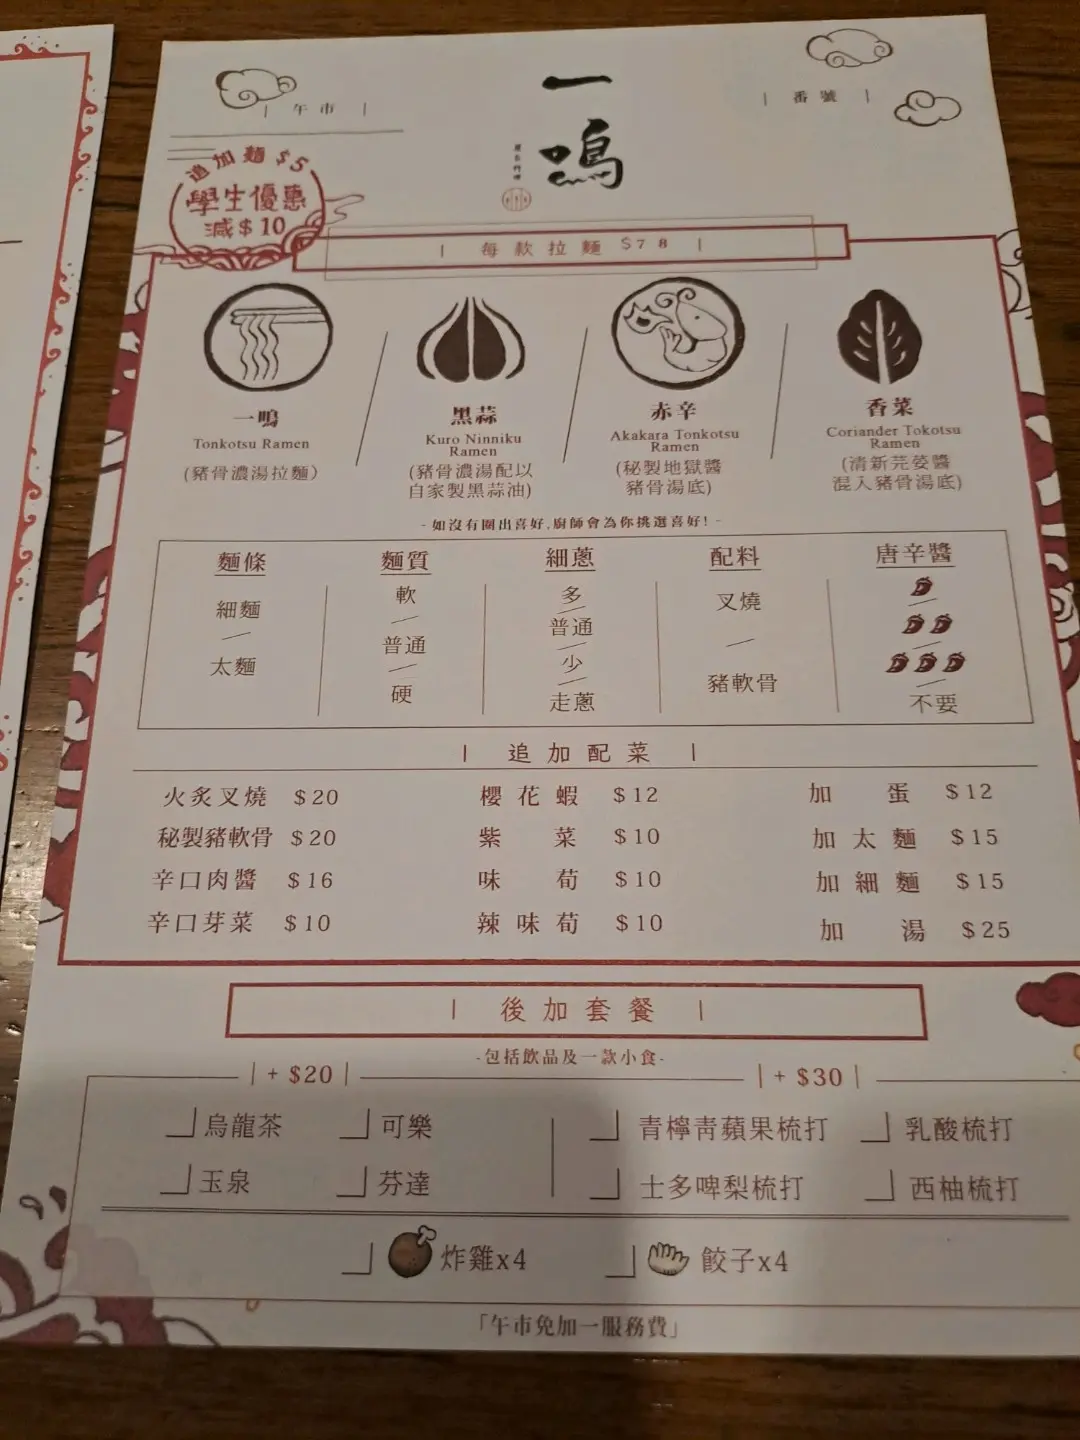 | 午市 |
一鳴
| 番號 |
追加麵 $5
學生優惠
減$10
| 每款拉麵 $78 |
一鳴
Tonkotsu Ramen
(豬骨濃湯拉麵)
黑蒜
Kuro Ninniku
Ramen
(豬骨濃湯配以
自家製黑蒜油)
赤辛
Akakara Tonkotsu
Ramen
(秘製地獄醬
豬骨湯底)
香菜
Coriander Tokotsu
Ramen
(清新芫荽醬
混入豬骨湯底)
- 如沒有圈出喜好,廚師會為你挑選喜好! -
麵條
細麵
太麵
麵質
軟
普通
硬
細蔥
多
普通
少
走蔥
配料
叉燒
豬軟骨
唐辛醬
不要
| 追加配菜 |
火炙叉燒 $20
秘製豬軟骨 $20
辛口肉醬 $16
辛口芽菜 $10
櫻花蝦 $12
紫菜 $10
味荀 $10
辣味荀 $10
加蛋 $12
加太麵 $15
加細麵 $15
加湯 $25
| 後加套餐 |
-包括飲品及一款小食-
| + $20 |
烏龍茶
可樂
玉泉
芬達
| + $30 |
青檸青蘋果梳打
乳酸梳打
士多啤梨梳打
西柚梳打
炸雞x4
餃子x4
「午市免加一服務費」